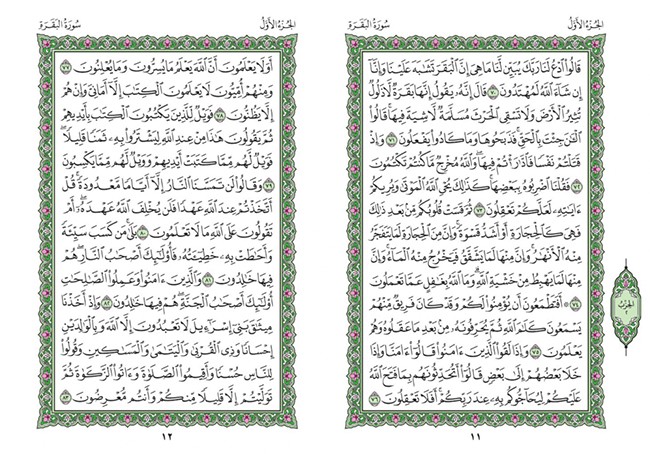 الجُزءُ الأَوَّلُ
سُورَةُ البَقَرَة
قَالُوا۟ ٱدْعُ لَنَا رَبَّكَ يُبَيِّن لَّنَا مَا هِىَ إِنَّ ٱلْبَقَرَ تَشَٰبَهَ عَلَيْنَا وَإِنَّآ
إِن شَآءَ ٱللَّهُ لَمُهْتَدُونَ ٧٠ قَالَ إِنَّهُۥ يَقُولُ إِنَّهَا بَقَرَةٌ لَّا ذَلُولٌ
تُثِيرُ ٱلْأَرْضَ وَلَا تَسْقِى ٱلْحَرْثَ مُسَلَّمَةٌ لَّا شِيَةَ فِيهَا قَالُوا۟
ٱلْـَٰٔنَ جِئْتَ بِٱلْحَقِّ فَذَبَحُوهَا وَمَا كَادُوا۟ يَفْعَلُونَ ٧١ وَإِذْ
قَتَلْتُمْ نَفْسًا فَٱدَّٰرَْٰٔتُمْ فِيهَا وَٱللَّهُ مُخْرِجٌ مَّا كُنتُمْ تَكْتُمُونَ
٧٢ فَقُلْنَا ٱضْرِبُوهُ بِبَعْضِهَا كَذَٰلِكَ يُحْىِ ٱللَّهُ ٱلْمَوْتَىٰ وَيُرِيكُمْ
ءَايَٰتِهِۦ لَعَلَّكُمْ تَعْقِلُونَ ٧٣ ثُمَّ قَسَتْ قُلُوبُكُم مِّنۢ بَعْدِ ذَٰلِكَ
فَهِىَ كَٱلْحِجَارَةِ أَوْ أَشَدُّ قَسْوَةً وَإِنَّ مِنَ ٱلْحِجَارَةِ لَمَا يَتَفَجَّرُ
مِنْهُ ٱلْأَنْهَٰرُ وَإِنَّ مِنْهَا لَمَا يَشَّقَّقُ فَيَخْرُجُ مِنْهُ ٱلْمَآءُ وَإِنَّ
مِنْهَا لَمَا يَهْبِطُ مِنْ خَشْيَةِ ٱللَّهِ وَمَا ٱللَّهُ بِغَٰفِلٍ عَمَّا تَعْمَلُونَ
٧٤ أَفَتَطْمَعُونَ أَن يُؤْمِنُوا۟ لَكُمْ وَقَدْ كَانَ فَرِيقٌ مِّنْهُمْ
يَسْمَعُونَ كَلَٰمَ ٱللَّهِ ثُمَّ يُحَرِّفُونَهُۥ مِنۢ بَعْدِ مَا عَقَلُوهُ وَهُمْ
يَعْلَمُونَ ٧٥ وَإِذَا لَقُوا۟ ٱلَّذِينَ ءَامَنُوا۟ قَالُوٓا۟ ءَامَنَّا وَإِذَا
خَلَا بَعْضُهُمْ إِلَىٰ بَعْضٍ قَالُوٓا۟ أَتُحَدِّثُونَهُم بِمَا فَتَحَ ٱللَّهُ
عَلَيْكُمْ لِيُحَآجُّوكُم بِهِۦ عِندَ رَبِّكُمْ أَفَلَا تَعْقِلُونَ ٧٦
١١
الحِزْب
٢
الجُزءُ الأَوَّلُ
سُورَةُ البَقَرَة
أَوَلَا يَعْلَمُونَ أَنَّ ٱللَّهَ يَعْلَمُ مَا يُسِرُّونَ وَمَا يُعْلِنُونَ ٧٧
وَمِنْهُمْ أُمِّيُّونَ لَا يَعْلَمُونَ ٱلْكِتَٰبَ إِلَّآ أَمَانِىَّ وَإِنْ هُمْ
إِلَّا يَظُنُّونَ ٧٨ فَوَيْلٌ لِّلَّذِينَ يَكْتُبُونَ ٱلْكِتَٰبَ بِأَيْدِيهِمْ
ثُمَّ يَقُولُونَ هَٰذَا مِنْ عِندِ ٱللَّهِ لِيَشْتَرُوا۟ بِهِۦ ثَمَنًا قَلِيلًا
فَوَيْلٌ لَّهُم مِّمَّا كَتَبَتْ أَيْدِيهِمْ وَوَيْلٌ لَّهُم مِّمَّا يَكْسِبُونَ
٧٩ وَقَالُوا۟ لَن تَمَسَّنَا ٱلنَّارُ إِلَّآ أَيَّامًا مَّعْدُودَةً قُلْ
أَتَّخَذْتُمْ عِندَ ٱللَّهِ عَهْدًا فَلَن يُخْلِفَ ٱللَّهُ عَهْدَهُۥٓ أَمْ
تَقُولُونَ عَلَى ٱللَّهِ مَا لَا تَعْلَمُونَ ٨٠ بَلَىٰ مَن كَسَبَ سَيِّئَةً
وَأَحَٰطَتْ بِهِۦ خَطِيٓـَٔتُهُۥ فَأُو۟لَٰٓئِكَ أَصْحَٰبُ ٱلنَّارِ هُمْ
فِيهَا خَٰلِدُونَ ٨١ وَٱلَّذِينَ ءَامَنُوا۟ وَعَمِلُوا۟ ٱلصَّٰلِحَٰتِ
أُو۟لَٰٓئِكَ أَصْحَٰبُ ٱلْجَنَّةِ هُمْ فِيهَا خَٰلِدُونَ ٨٢ وَإِذْ أَخَذْنَا
مِيثَٰقَ بَنِىٓ إِسْرَٰٓءِيلَ لَا تَعْبُدُونَ إِلَّا ٱللَّهَ وَبِٱلْوَٰلِدَيْنِ
إِحْسَانًا وَذِى ٱلْقُرْبَىٰ وَٱلْيَتَٰمَىٰ وَٱلْمَسَٰكِينِ وَقُولُوا۟
لِلنَّاسِ حُسْنًا وَأَقِيمُوا۟ ٱلصَّلَوٰةَ وَءَاتُوا۟ ٱلزَّكَوٰةَ ثُمَّ
تَوَلَّيْتُمْ إِلَّا قَلِيلًا مِّنكُمْ وَأَنتُم مُّعْرِضُونَ ٨٣
١٢